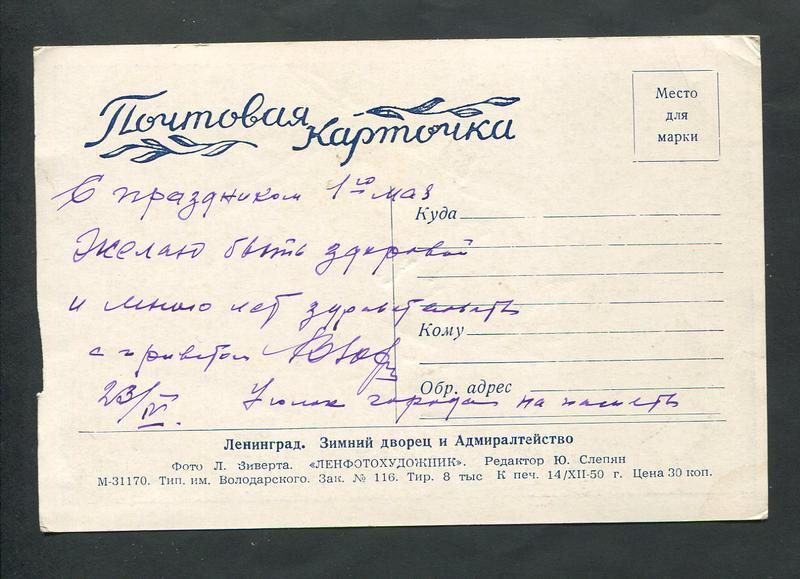 Почтовая карточка
Место
для
марки
С праздником 1го мая
Куда
Желаю быть здоровой
и много лет здравствовать
Кому
с приветом
Обр. адрес
23/IV. Уголок города на память
Ленинград. Зимний дворец и Адмиралтейство
Фото Л. Зиверта. «ЛЕНФОТОХУДОЖНИК». Редактор Ю. Слепян
М-31170. Тип. им. Володарского. Зак. № 116. Тир. 8 тыс К печ. 14/XII-50 г. Цена 30 коп.